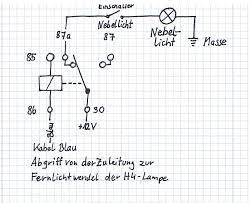 Einschalter
Nebellicht
87a
87
Nebel-
licht
Masse
85
86
30
Blau
+12V
Kabel Blau
Abgriff von der Zuleitung zur
Fernlichtwendel der H4-Lampe.